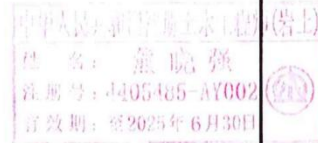 中华人民共和国注册土木工程师(岩土)
姓 名: 董晓强
注册号: 4405485-AY002
有效期: 至2025年6月30日